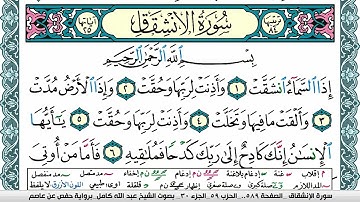 سُورَةُ الِانشِقَاقِ
بِسْمِ اللَّهِ الرَّحْمَٰنِ الرَّحِيمِ
إِذَا السَّمَاءُ انشَقَّتْ ١ وَأَذِنَتْ لِرَبِّهَا وَحُقَّتْ ٢ وَإِذَا الْأَرْضُ مُدَّتْ
٣ وَأَلْقَتْ مَا فِيهَا وَتَخَلَّتْ ٤ وَأَذِنَتْ لِرَبِّهَا وَحُقَّتْ ٥ يَا أَيُّهَا
الْإِنسَانُ إِنَّكَ كَادِحٌ إِلَىٰ رَبِّكَ كَدْحًا فَمُلَاقِيهِ ٦ فَأَمَّا مَنْ أُوتِيَ
سورة الإنشقاق - الصفحة ٥٨٩ - الحزب ٥٩ - الجزء ٣٠ - بصوت الشيخ عبد الله كامل - برواية حفص عن عاصم